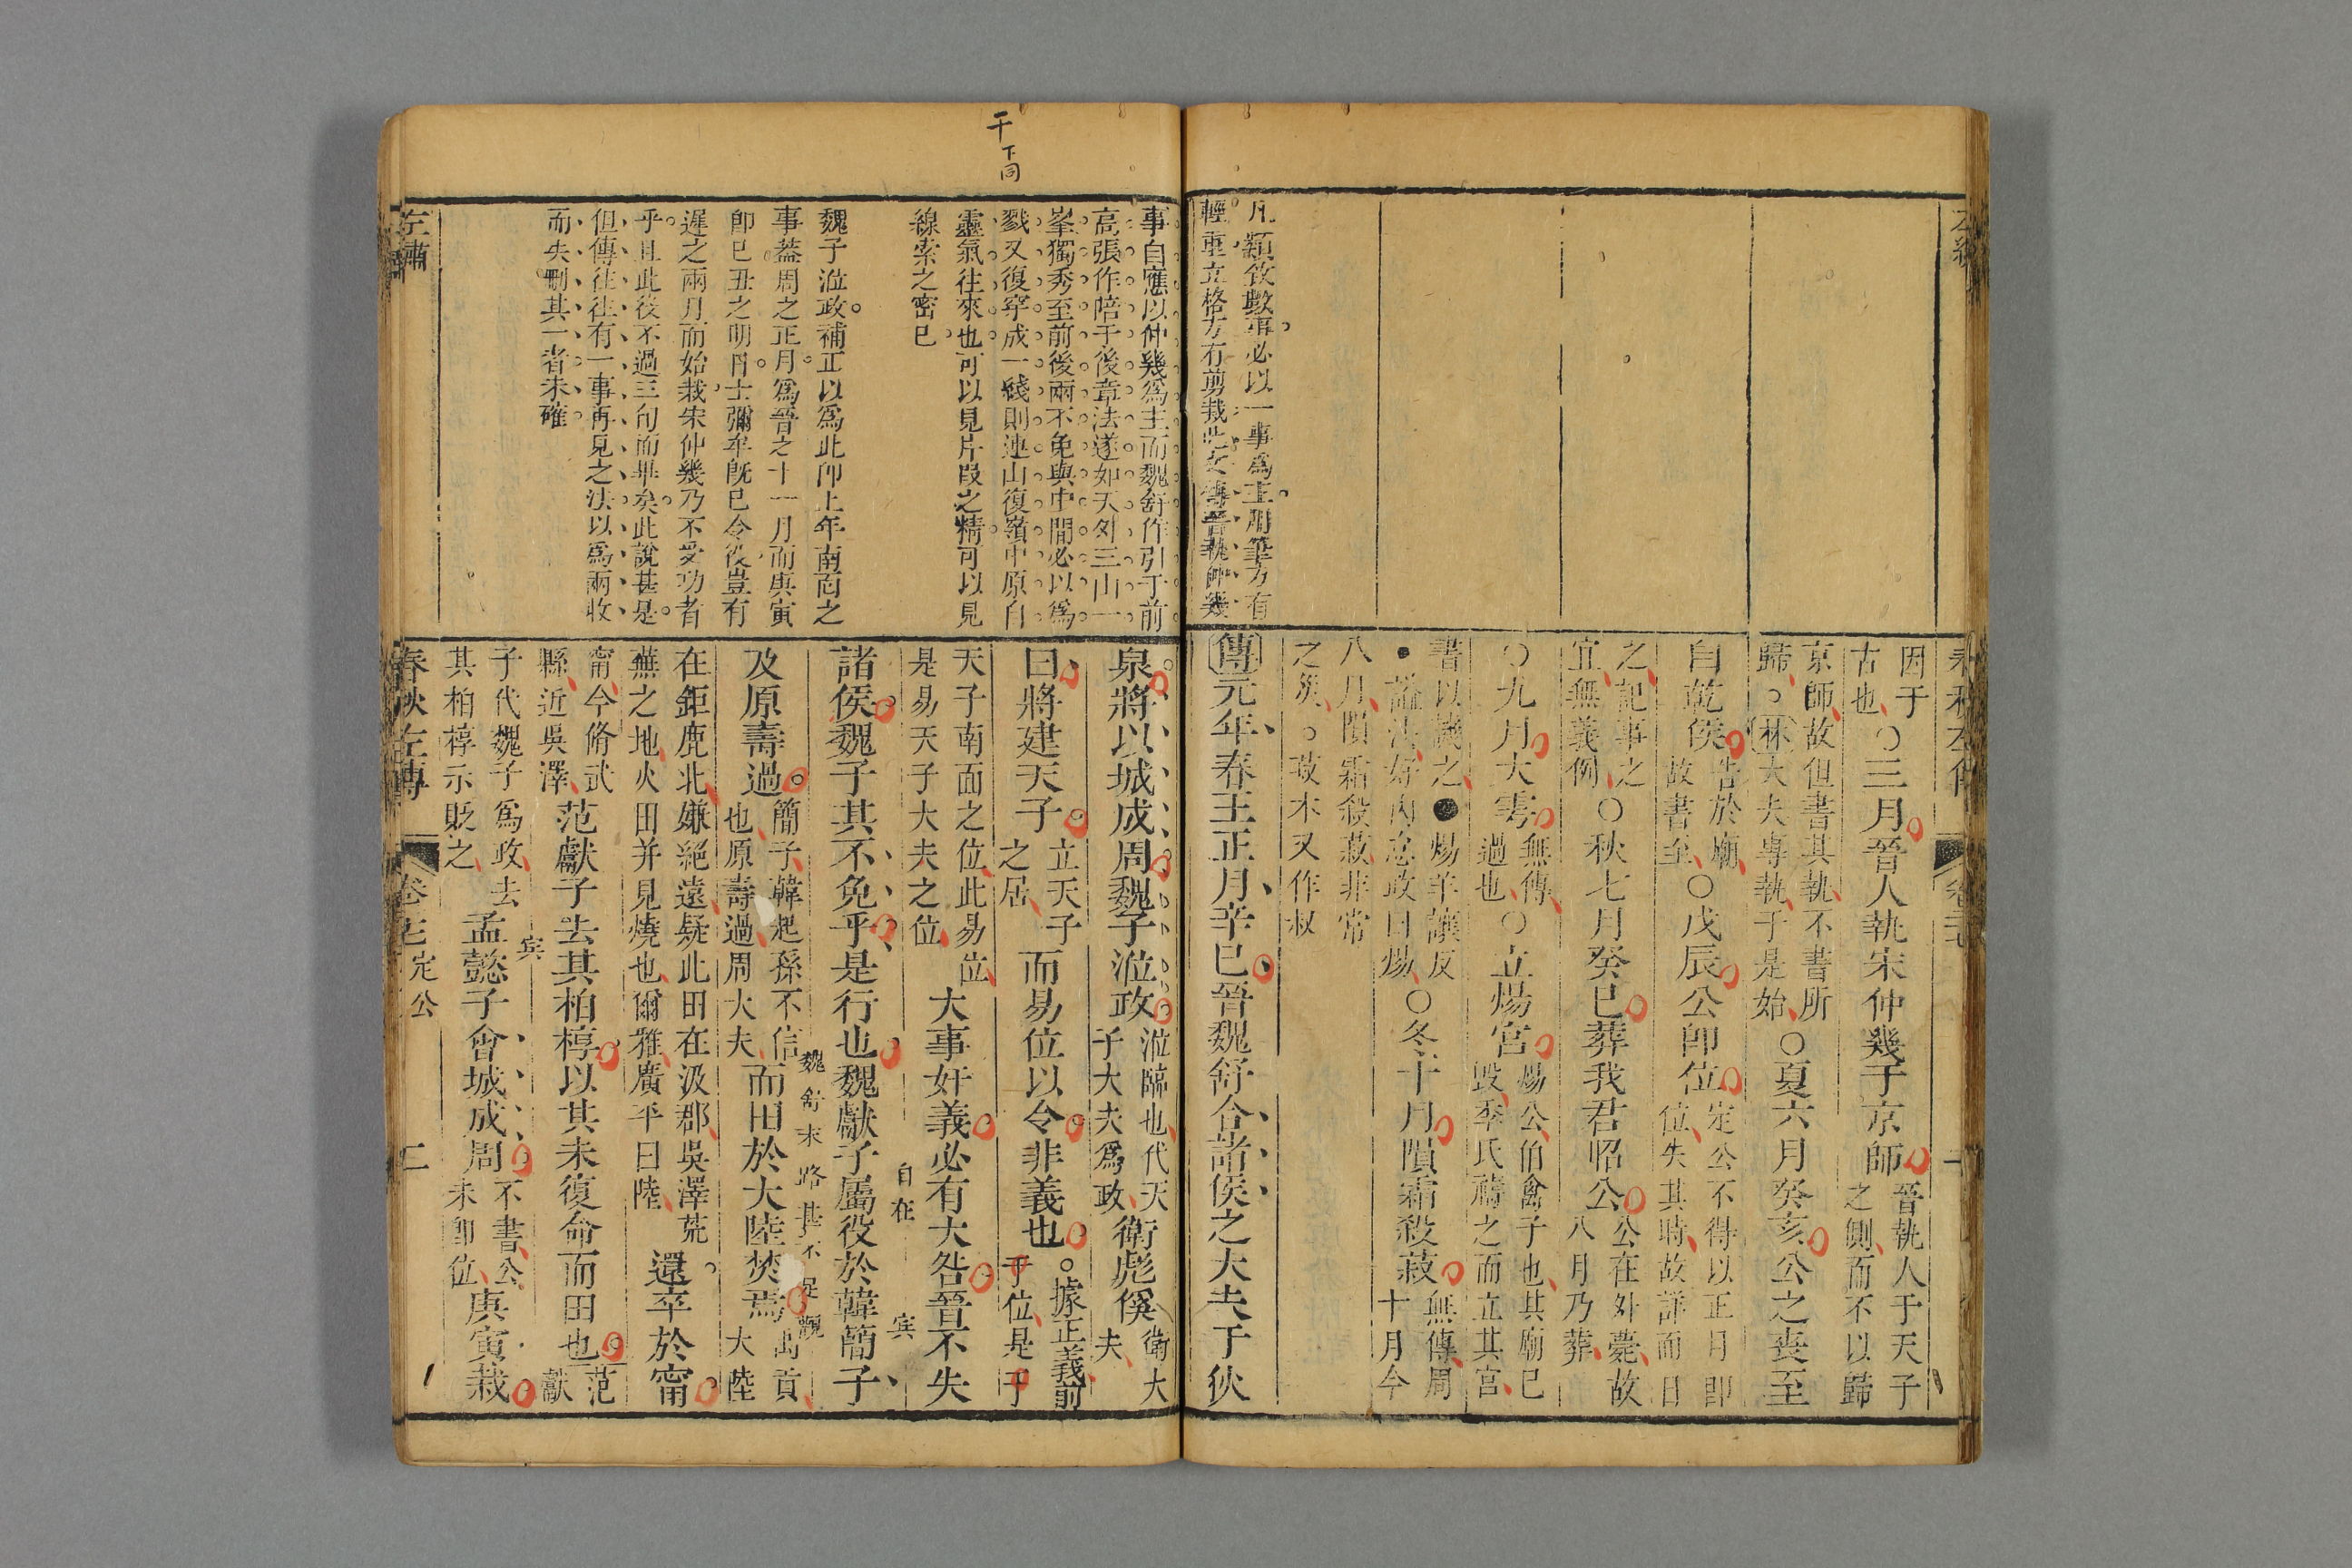 左繡
凡類敘數事必以一事爲主用筆方有
輕重立格方有剪裁此文傳晉執仲幾
春秋左傳 卷二十七 一
因于
古也
○三月晉人執宋仲幾于京師
晉執人于天子
之側而不以歸
京師故但書其執不書所
歸○林大夫專執于是始
○夏六月癸亥公之喪至
自乾侯
告於廟
故書至
○戊辰公卽位
定公不得以正月卽
位失其時故詳而日
之記事之
宜無義例
○秋七月癸巳葬我君昭公
公在外薨故
八月乃葬
○九月大雩
無傳
過也
○立煬宮
煬公伯禽子也其廟已
毀季氏禱之而立其宮
書以譏之●煬羊讓反
●諡法好內怠政曰煬
○冬十月隕霜殺菽
無傳周
十月今
八月隕霜殺菽非常
之災○菽本又作叔
傳元年春王正月辛巳晉魏舒合諸侯之大夫于狄
干下同
事自應以仲幾爲主而魏舒作引于前
高張作陪于後章法遂如天外三山一
峯獨秀至前後兩不免與中間必以爲
戮又復穿成一綫則連山復嶺中原自
靈氣往來也可以見片段之精可以見
線索之密已
魏子涖政補正以爲此卽上年南面之
事葢周之正月爲晉之十一月而庚寅
卽已丑之明日士彌牟旣已令役豈有
遲之兩月而始栽宋仲幾乃不受功者
乎且此役不過三旬而畢矣此說甚是
但傳往往有一事再見之法以爲兩收
而失刪其一者未確
泉將以城成周魏子涖政
涖臨也代天
子大夫爲政
衛彪傒
衛大
夫
曰將建天子
立天子
之居
而易位以令非義也
○據正義前
于位是于
天子南面之位此易位
是易天子大夫之位
大事奸義必有大咎晉不失
諸侯魏子其不免乎是行也魏獻子屬役於韓簡子
自在 宾
及原壽過
簡子韓起孫不信
也原壽過周大夫
而田於大陸焚焉
禹貢
大陸
魏舒末路甚不足觀
在鉅鹿北嫌絕遠疑此田在汲郡吳澤荒
蕪之地火田并見燒也爾雅廣平曰陸
還卒於甯
甯今脩武
縣近吳澤
范獻子去其柏椁以其未復命而田也
范
獻
子代魏子爲政去
其柏椁示貶之
宾
孟懿子會城成周
不書公
未卽位
庚寅栽
左繡
春秋左傳 卷二十七 定公 二